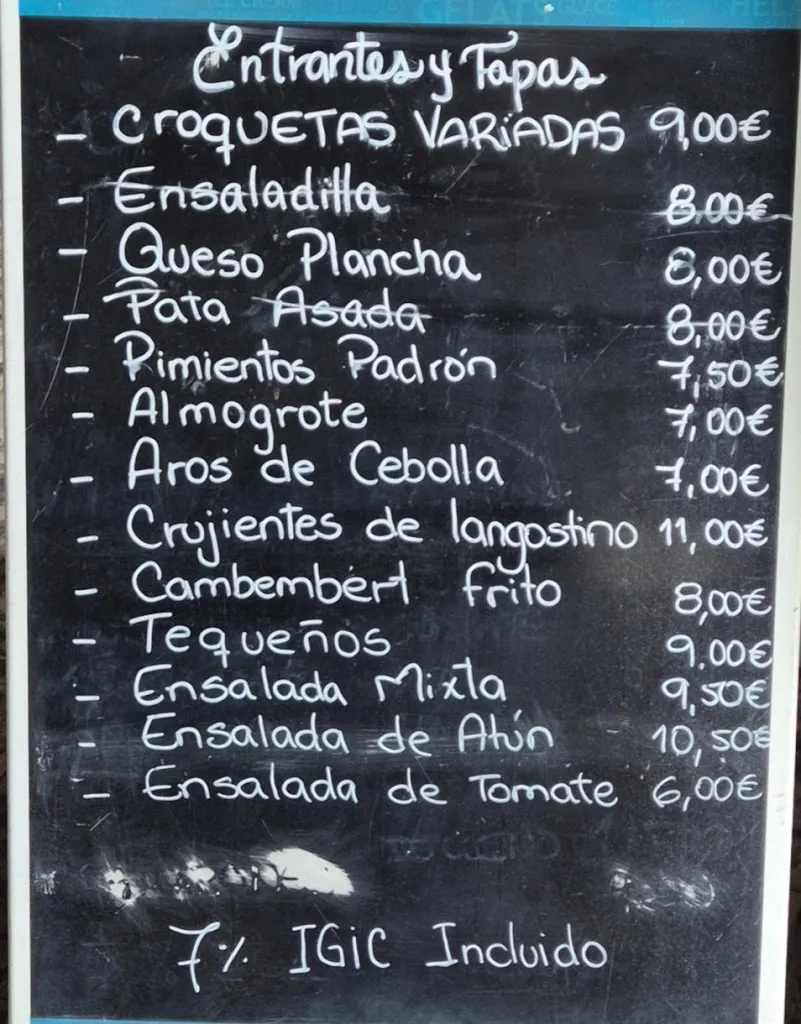 GELATS GLACE
Entrantes y Tapas
- CROQUETAS VARIADAS 9,00€
- Ensaladilla 8,00€
- Queso Plancha 8,00€
- Pata Asada 8,00€
- Pimientos Padrón 7,50€
- Almogrote 7,00€
- Aros de Cebolla 7,00€
- Crujientes de langostino 11,00€
- Cambembért frito 8,00€
- Tequeños 9,00€
- Ensalada Mixta 9,50€
- Ensalada de Atún 10,50€
- Ensalada de Tomate 6,00€
7% IGiC Incluido